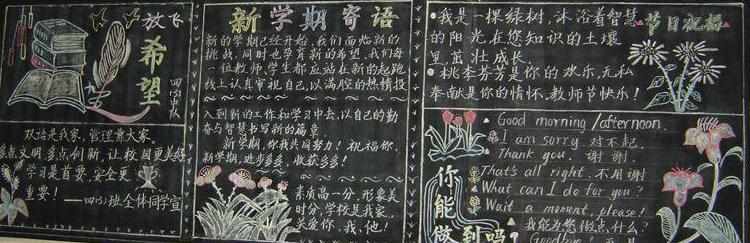 放飞
希望
四(3)中队
班语是我家,管理靠大家。
多点文明,多点创新,让校园更美丽
学习是首要,安全更
重要!
——四(3)班全体同学宣
新学期寄语
新的学期已经开始,我们面临新的
挑战,同时也孕育新的希望。我们每
一位教师、学生都应站在新的起跑
线上认真审视自己,以满腔的热情投
入到新的工作和学习中去,以自己的勤
奋与智慧书写新的篇章
新学期,你我共同努力!祝福你,
新学期,进步多多,收获多多!
素质高一分,形象美
时分,学校是我家,
关爱你、我、他!
节日祝福
·我是一棵绿树,沐浴着智慧
的阳光,在您知识的土壤
里茁壮成长。
·桃李芬芳是你的欢乐,无私
奉献是你的情怀,教师节快乐!
你能做到吗?
Good morning/afternoon.
I am sorry 对不起.
Thank you. 谢谢.
That's all right. 不用谢
What can I do for you?
Wait a moment, please!
我能为您做点什么?